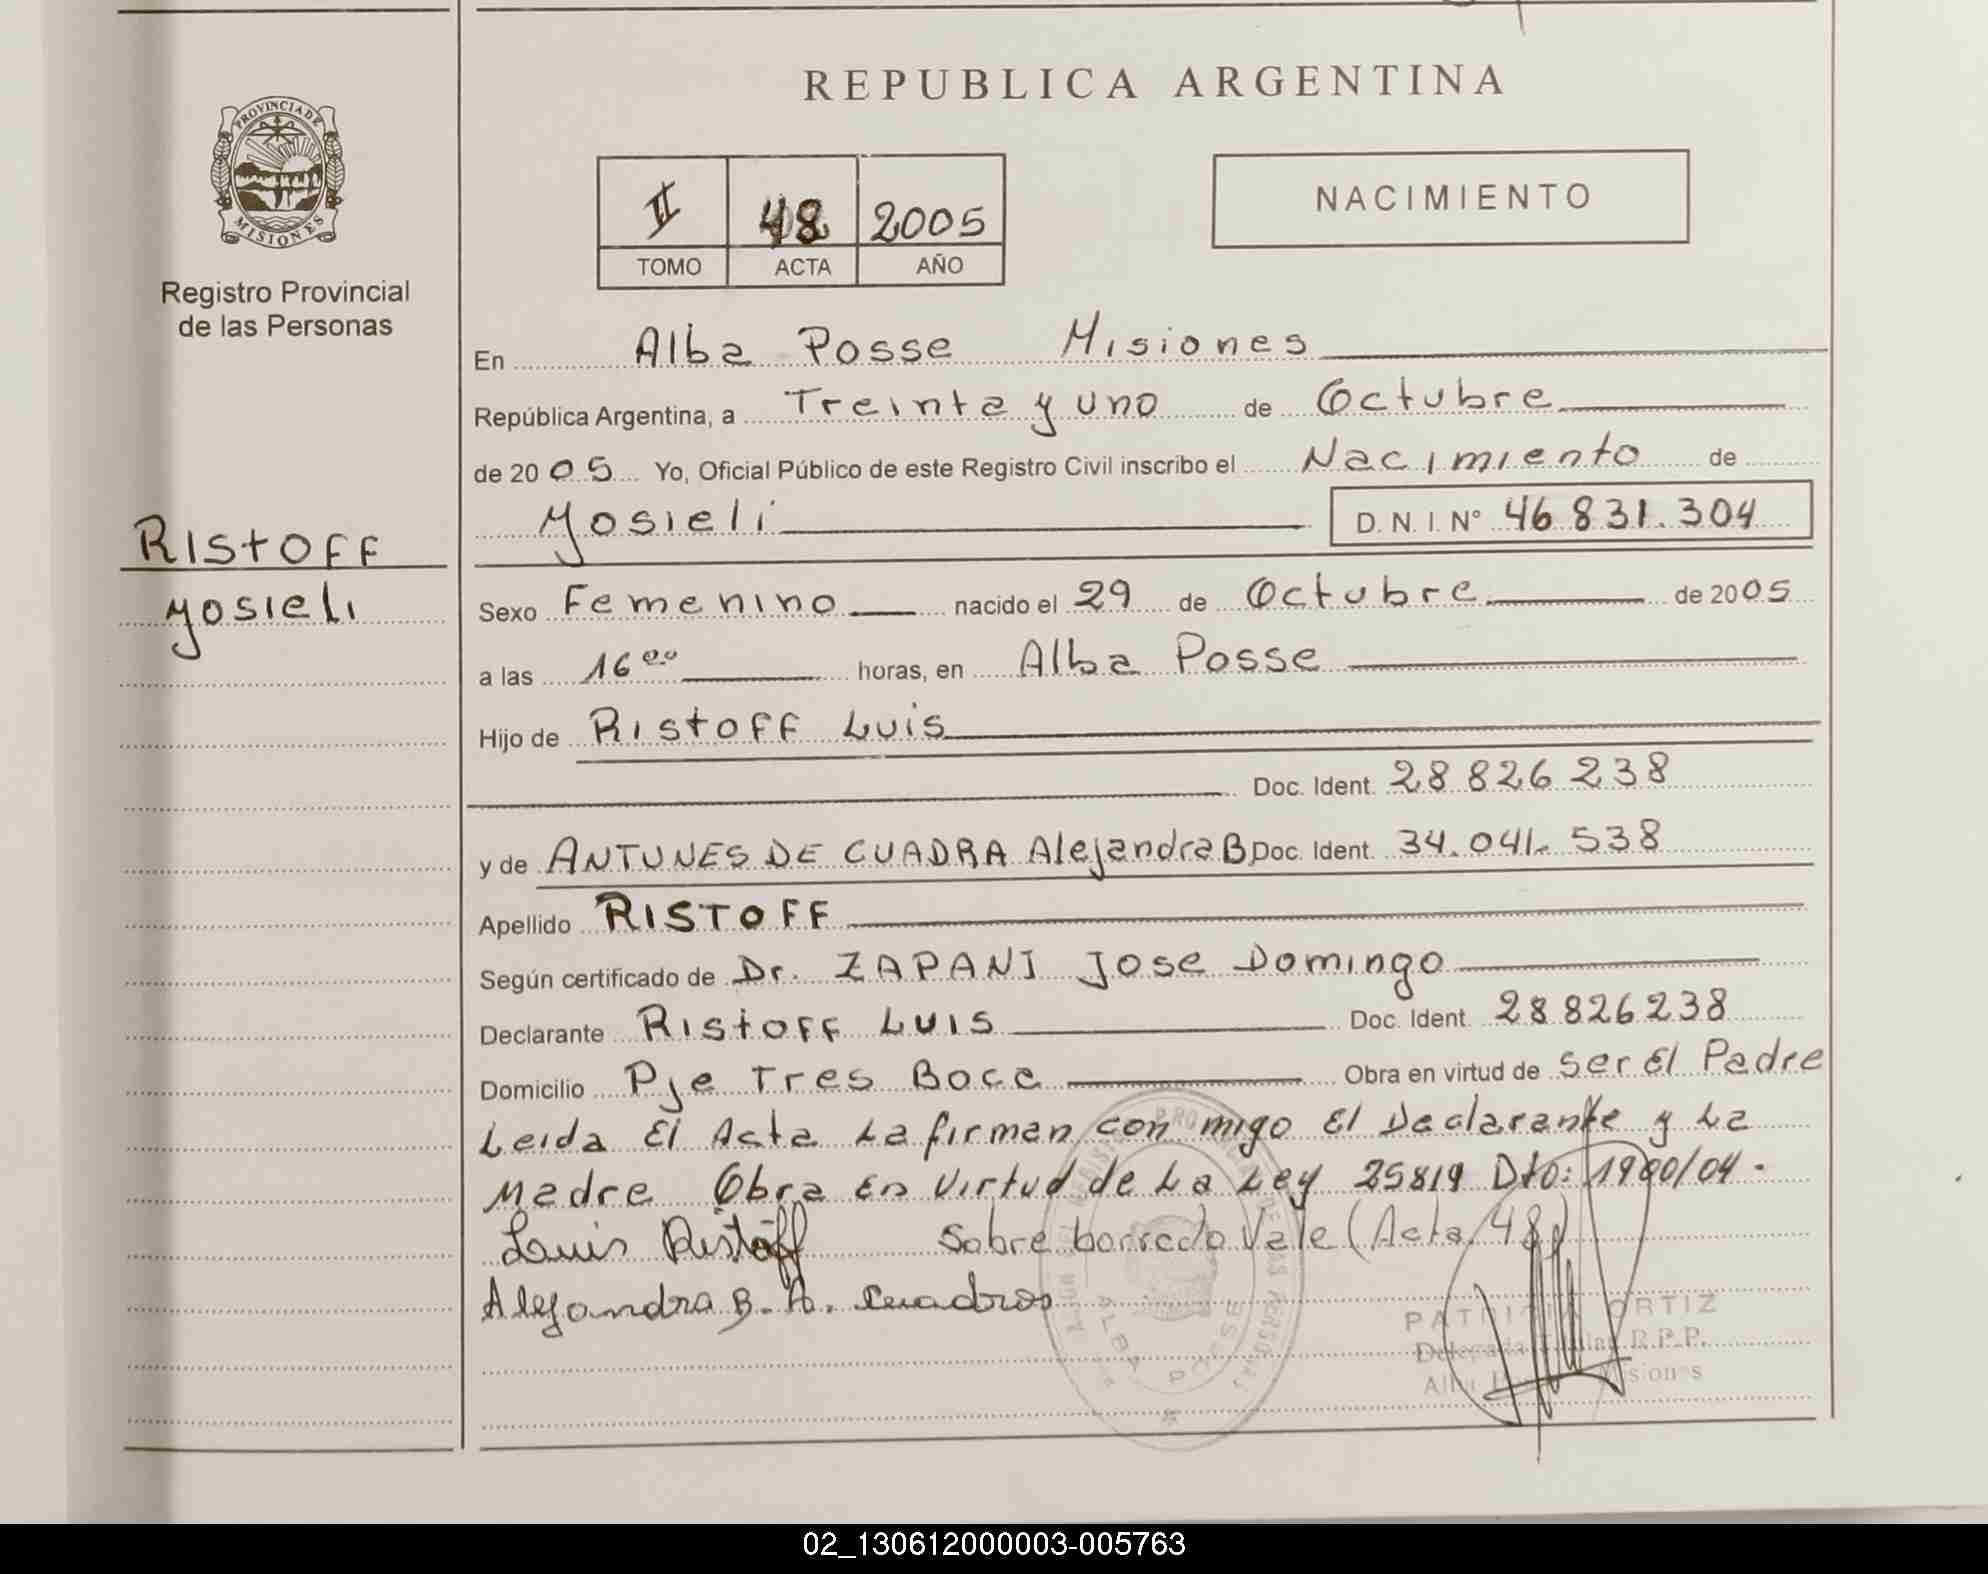 REPUBLICA ARGENTINA
PROVINCIA DE
MISIONES
Registro Provincial
de las Personas
II 48 2005
TOMO ACTA AÑO
NACIMIENTO
En Alba Posse Misiones
República Argentina, a Treinta y uno de Octubre
de 2005 Yo, Oficial Público de este Registro Civil inscribo el Nacimiento de
Yosieli D. N. I. N° 46 831.304
RISTOFF
Yosieli
Sexo Femenino nacido el 29 de Octubre de 2005
a las 16 00 horas, en Alba Posse
Hijo de Ristoff Luis
Doc. Ident. 28 826 238
y de ANTUNES DE CUADRA Alejandra B Doc. Ident. 34.041. 538
Apellido RISTOFF
Según certificado de Dr. ZAPANI Jose Domingo
Declarante Ristoff Luis Doc. Ident. 28 826 238
Domicilio Pje Tres Boca Obra en virtud de Ser El Padre
Leida El Acta La firman con migo El Declarante y La
Madre Obra en Virtud de La Ley 25819 Dto: 1900/04.
Luis Ristoff Sobre borrado Vale (Acta 48)
Alejandra B. A. Cuadros
ALBA POSSE
PATRICIA ORTIZ
Delegada Titular R.P.P.
Alba Posse Misiones
02_130612000003-005763